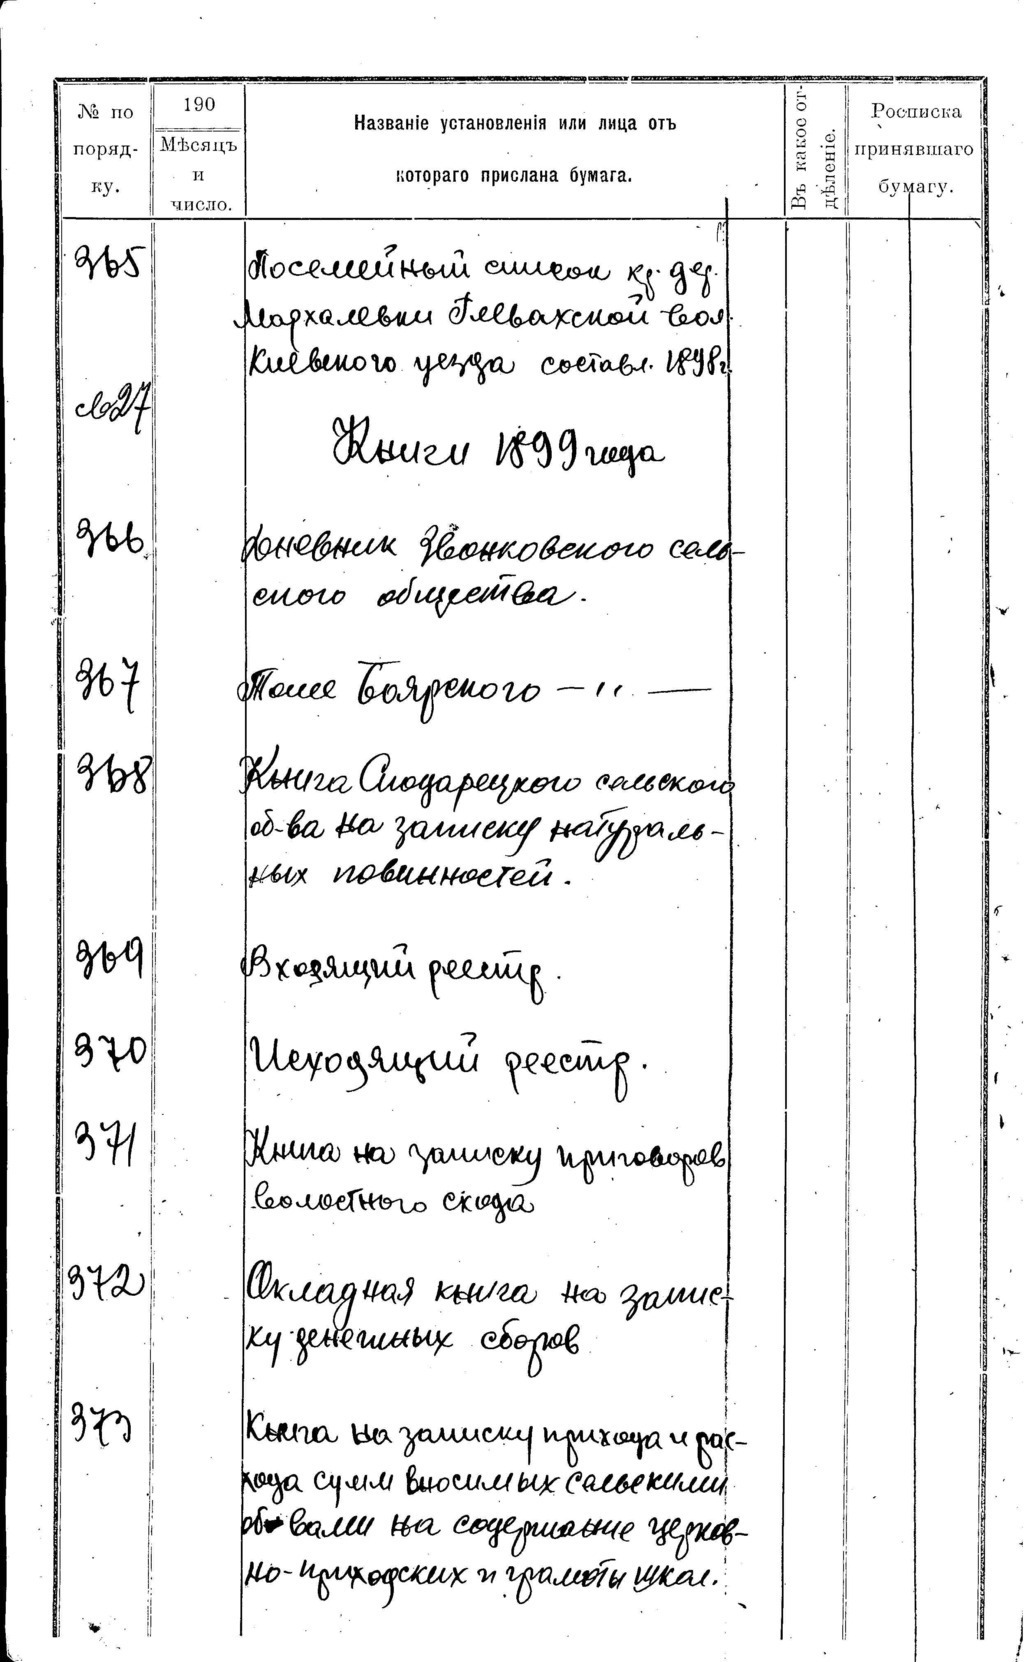 № по поряд-ку.
190
Мѣсяцъ и число.
Названіе установленія или лица отъ
котораго прислана бумага.
Въ какое от-дѣленіе.
Росписка принявшаго бумагу.
365 Посемейный список кр. дер.
Мархалевки Глевахской вол.
Киевского уезда составл. 1898г
св 27
Книги 1899 года
366 Дневник Звонковского сель-
ского общества.
367 Тоже Боярского — " —
368 Книга Слодарецкого сельского
об-ва на записку натураль-
ных повинностей.
369 Входящий реестр.
370 Исходящий реестр.
371 Книга на записку приговоров
волостного схода
372 Окладная книга на запис-
ку денежных сборов
373 Книга на записку прихода и рас-
хода сумм вносимых сельскими
об-вами на содержание церков-
но-приходских и грамоты школ.